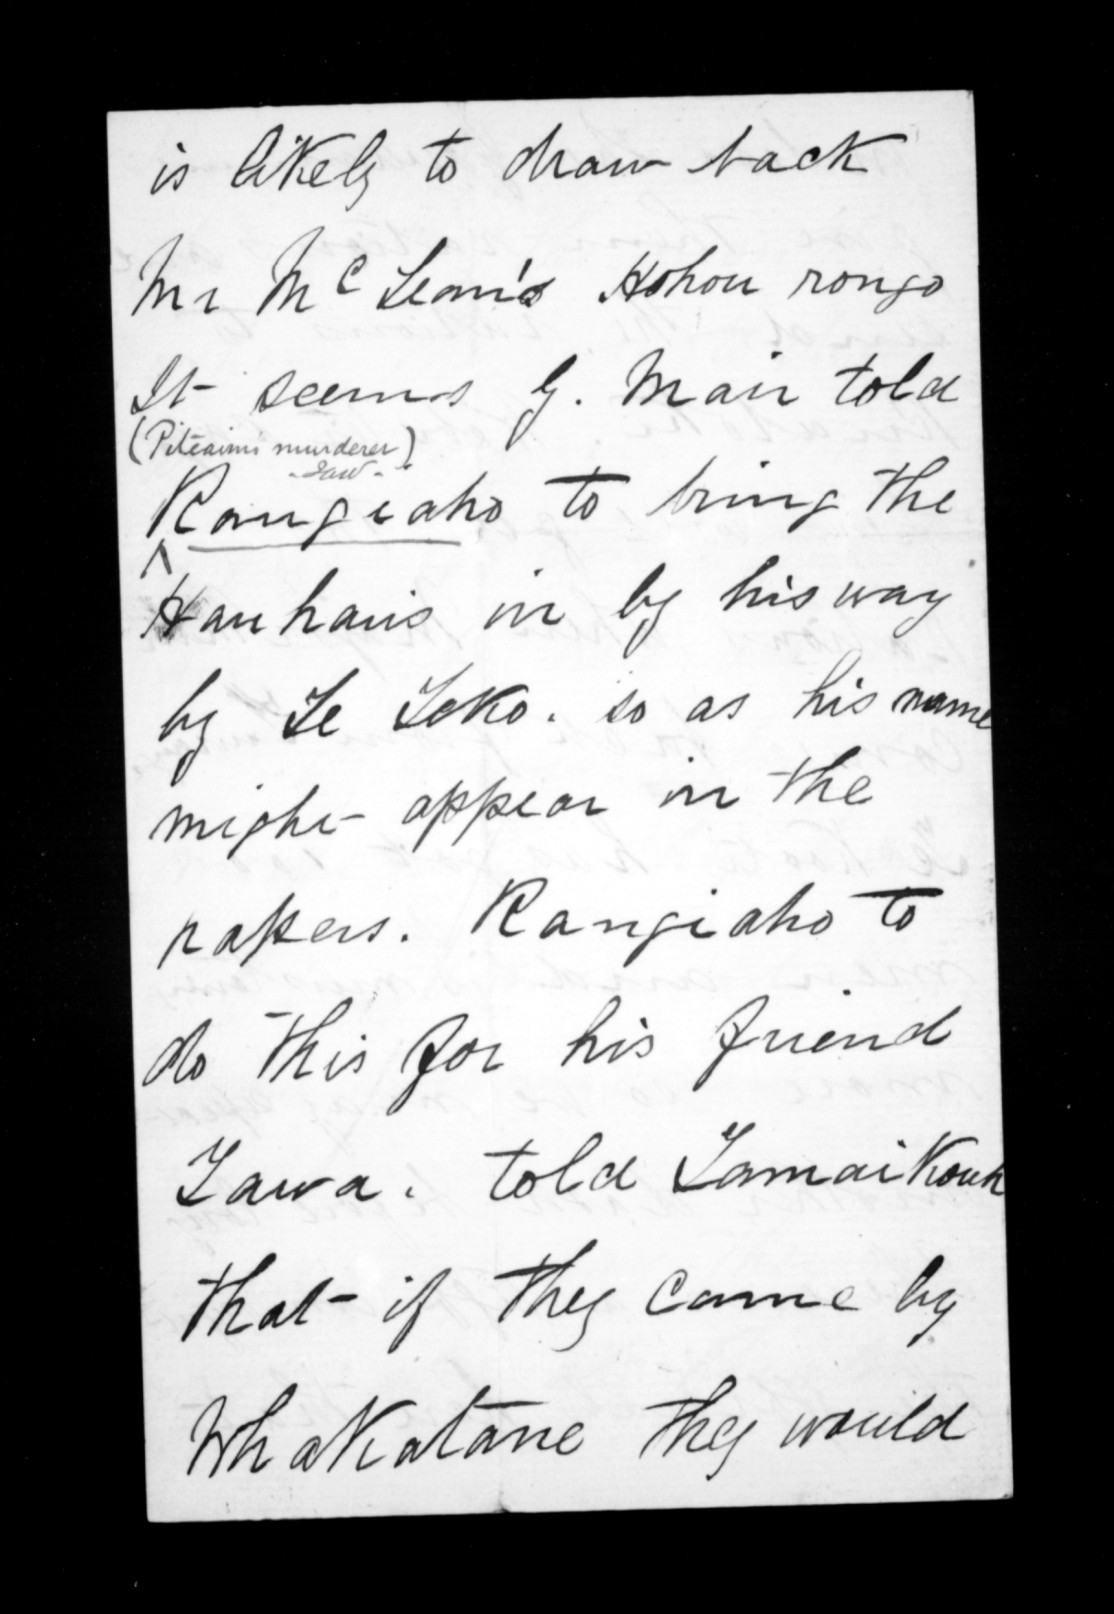 is likely to draw back
Mr McLean's Hohou rongo
It seems G. Mair told
(Pitcairns murderer)
Rangiaho to bring the
Hauhaus in by his way
by Te Teko. so as his name
might appear in the
papers. Rangiaho to
do this for his friend
Tawa. told Tamaikouh
that if they came by
Whakatane they would